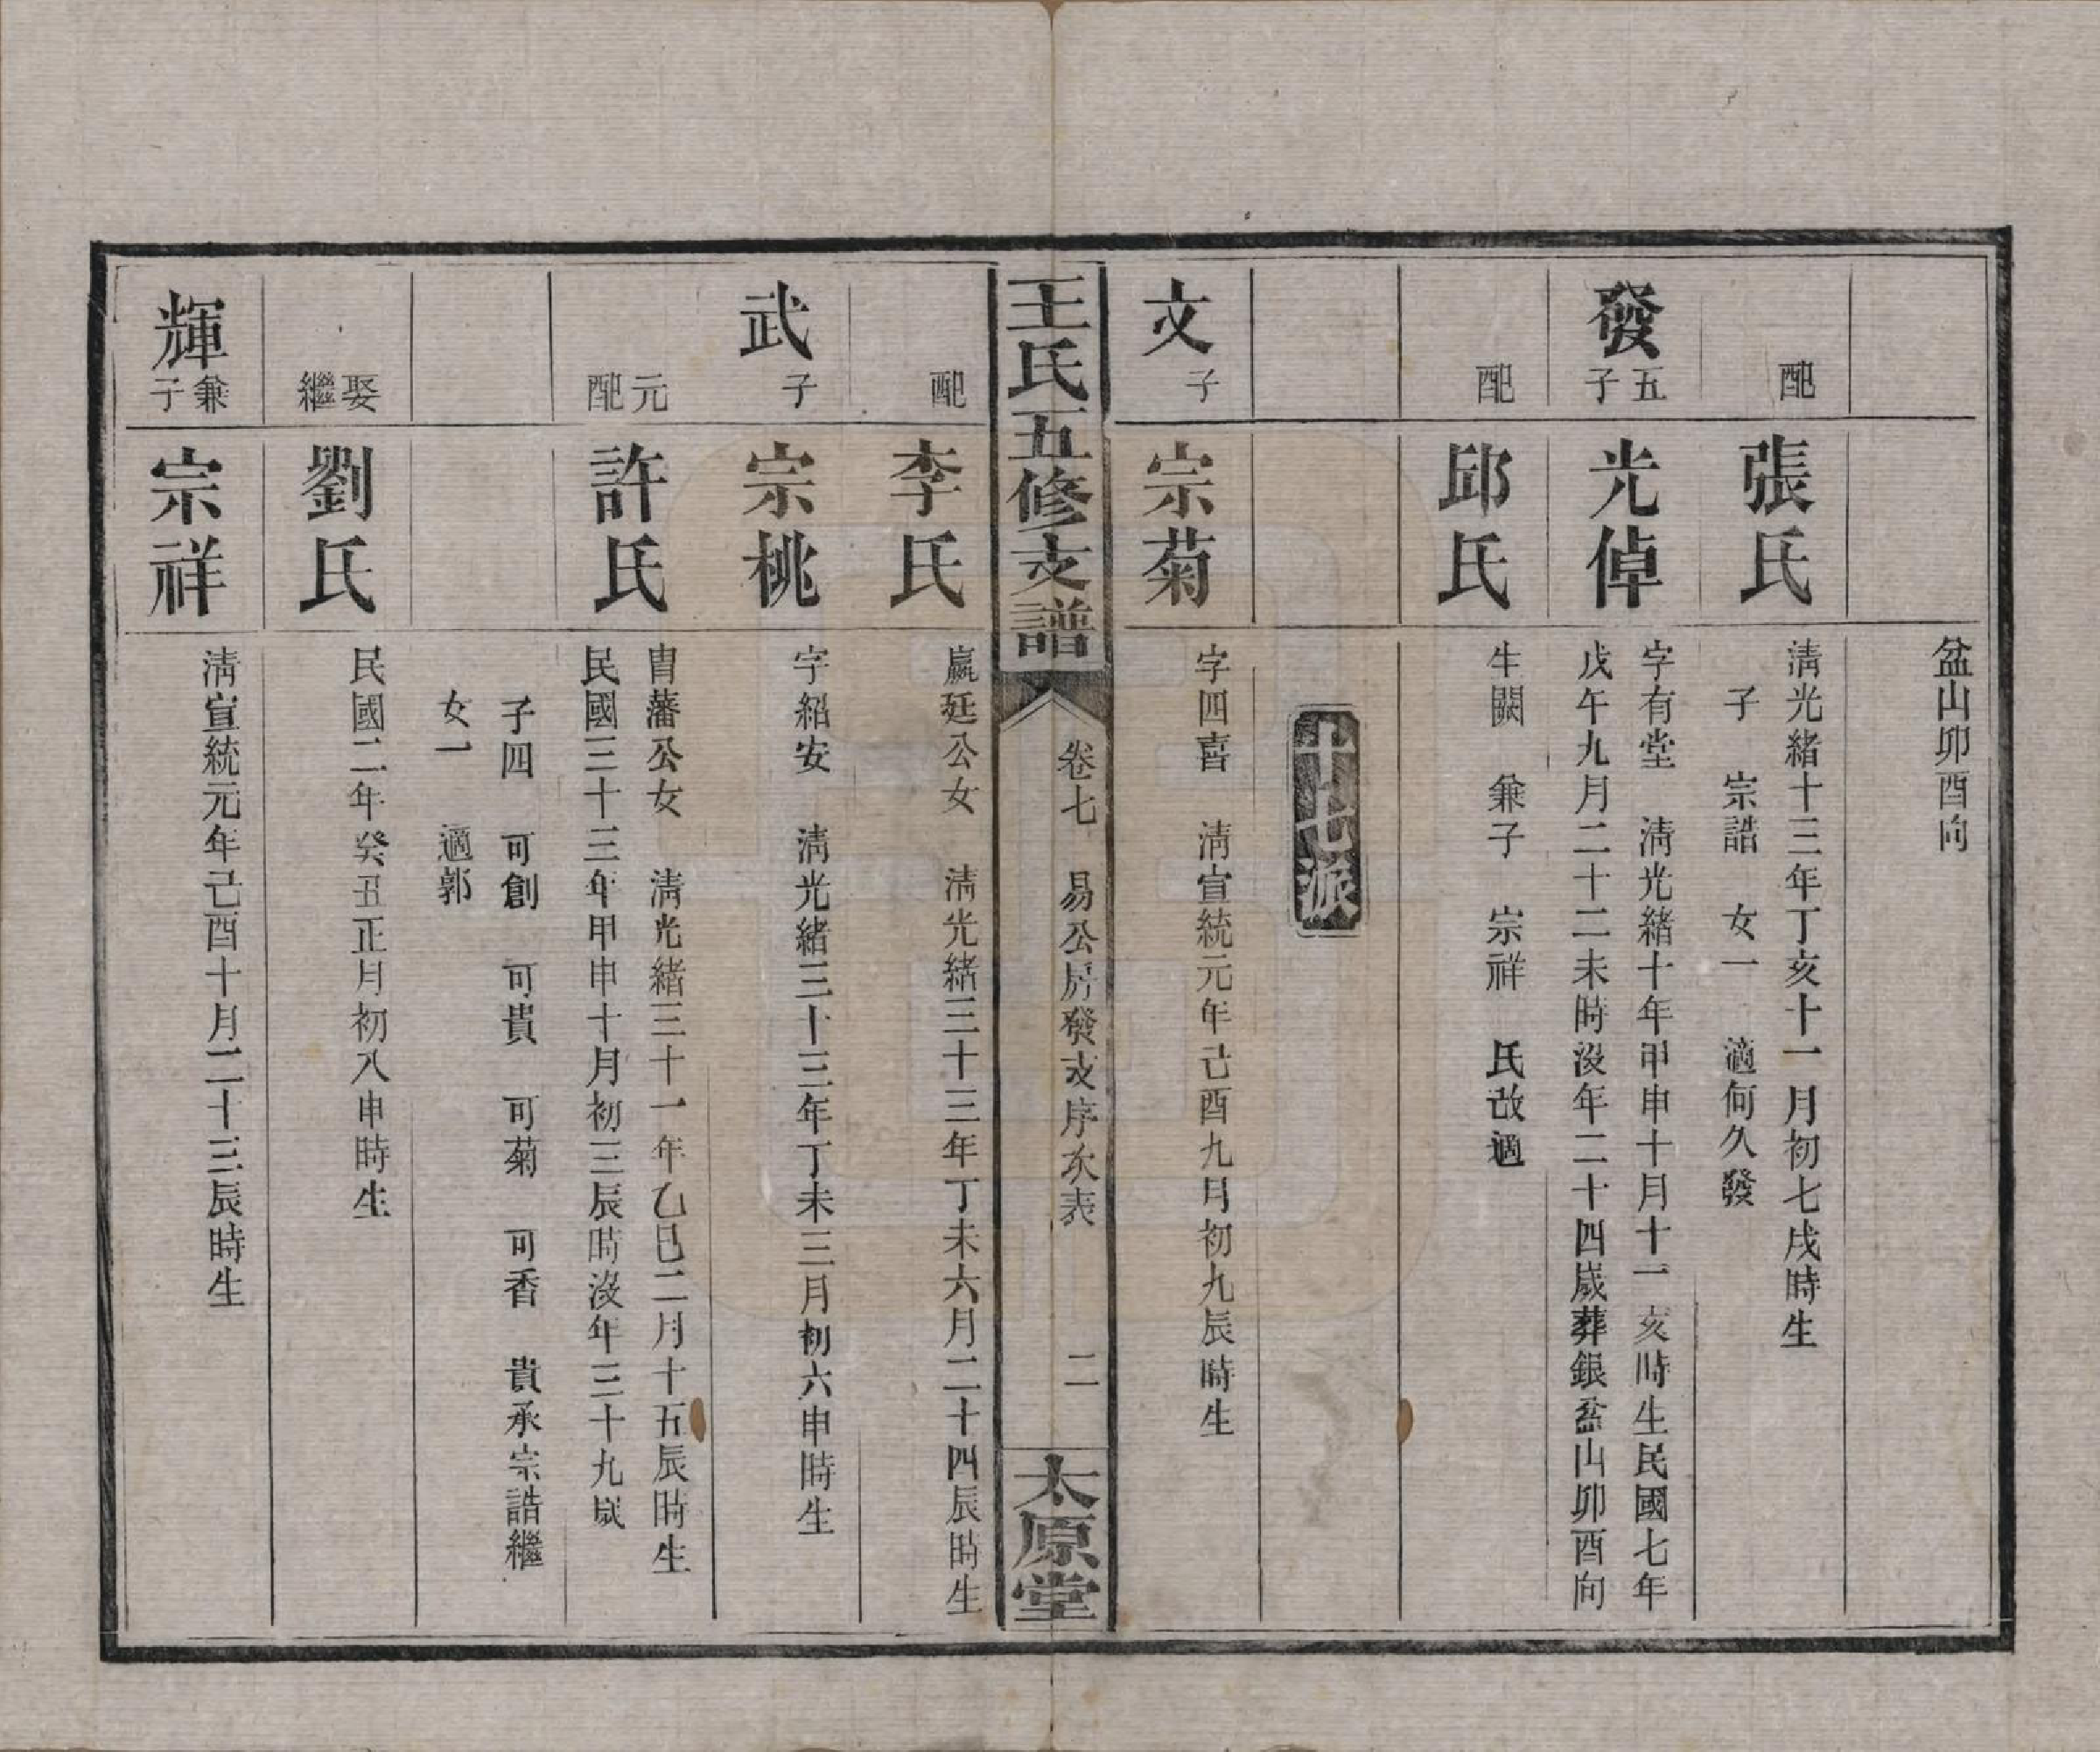 盆山卯酉向
配
張氏
清光緒十三年丁亥十一月初七戌時生
子　宗誥　女一　適何久發
發
五子
光倬
字有堂　清光緒十年甲申十月十一亥時生民國七年
戊午九月二十二未時沒年二十四歲葬銀盆山卯酉向
配
邱氏
生闕　兼子　宗祥　氏改適
十七派
文
子
宗菊
字四喜　清宣統元年己酉九月初九辰時生
王氏五修支譜
卷七　易公房發支序次表
二
太原堂
配
李氏
嬴廷公女　清光緒三十三年丁未六月二十四辰時生
武
子
宗桃
字紹安　清光緒三十三年丁未三月初六申時生
元配
許氏
胄藩公女　清光緒三十一年乙巳二月十五辰時生
民國三十三年甲申十月初三辰時沒年三十九歲
子四　可創　可貴　可菊　可香　貴承宗誥繼
女一　適郭
娶繼
劉氏
民國二年癸丑正月初八申時生
輝
兼子
宗祥
清宣統元年己酉十月二十三辰時生